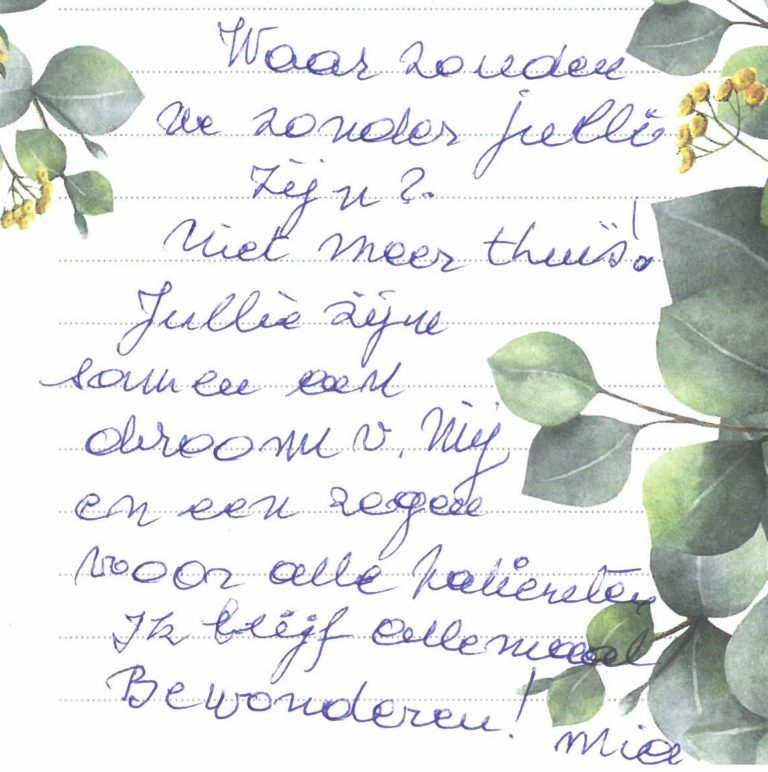 Waar zouden
we zonder jullie
zijn?
Niet meer thuis!
Jullie zijn
samen een
droom v. mij
en een zegen
voor alle patiënten
Ik blijf allemaal
Bewonderen!
Mia